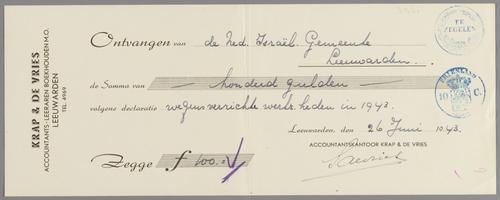 KRAP & DE VRIES
ACCOUNTANTS - LEERAREN BOEKHOUDEN M.O.
LEEUWARDEN
TEL. 4969
TE ZEGELEN
Ontvangen van de Ned. Israël. Gemeente
Leeuwarden.
de Somma van honderd gulden
volgens declaratie wegens verrichte werkzheden in 1943.
Leeuwarden, den 26 Juni 1943.
ACCOUNTANTSKANTOOR KRAP & DE VRIES
Zegge f 100.=
10 C.